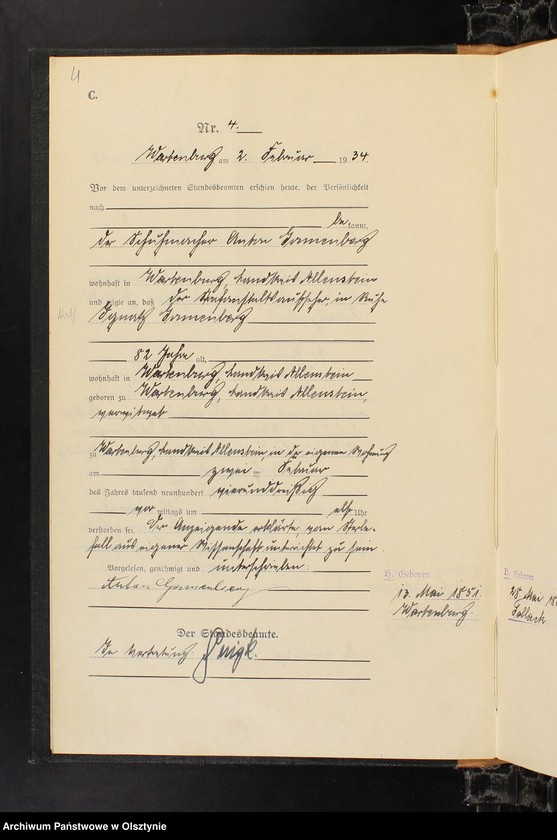 4
C.
Nr. 4.
Wartenburg am 2. Februar 19 34.
Vor dem unterzeichneten Standesbeamten erschien heute, der Persönlichkeit
nach
be kannt,
der Schuhmacher Anton
wohnhaft in Wartenburg, Landkreis Allenstein
und zeigte an, daß der Strafanstaltsaufseher in Ruhe
Ignatz
82 Jahre alt,
wohnhaft in Wartenburg, Landkreis Allenstein
geboren zu Wartenburg, Landkreis Allenstein,
verwitwet
zu Wartenburg, Landkreis Allenstein, in der eigenen Wohnung
am zwei ten Februar
des Jahres tausend neunhundert vierunddreißig
vor mittags um elf Uhr
verstorben sei. Der Anzeigende erklärte, vom Sterbe-
fall aus eigener Wissenschaft unterrichtet zu sein.
Vorgelesen, genehmigt und unterschrieben:
Anton
Der Standesbeamte.
In Vertretung
H. Geboren
13. Mai 1851.
Wartenburg.
H. Geboren
28. Mai
Archiwum Państwowe w Olsztynie